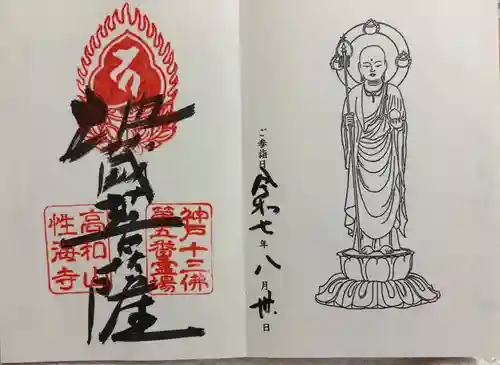 ご参詣日 令和七年八月卅日
神戸十三佛
第五番霊場
地蔵菩薩
高和山
性海寺